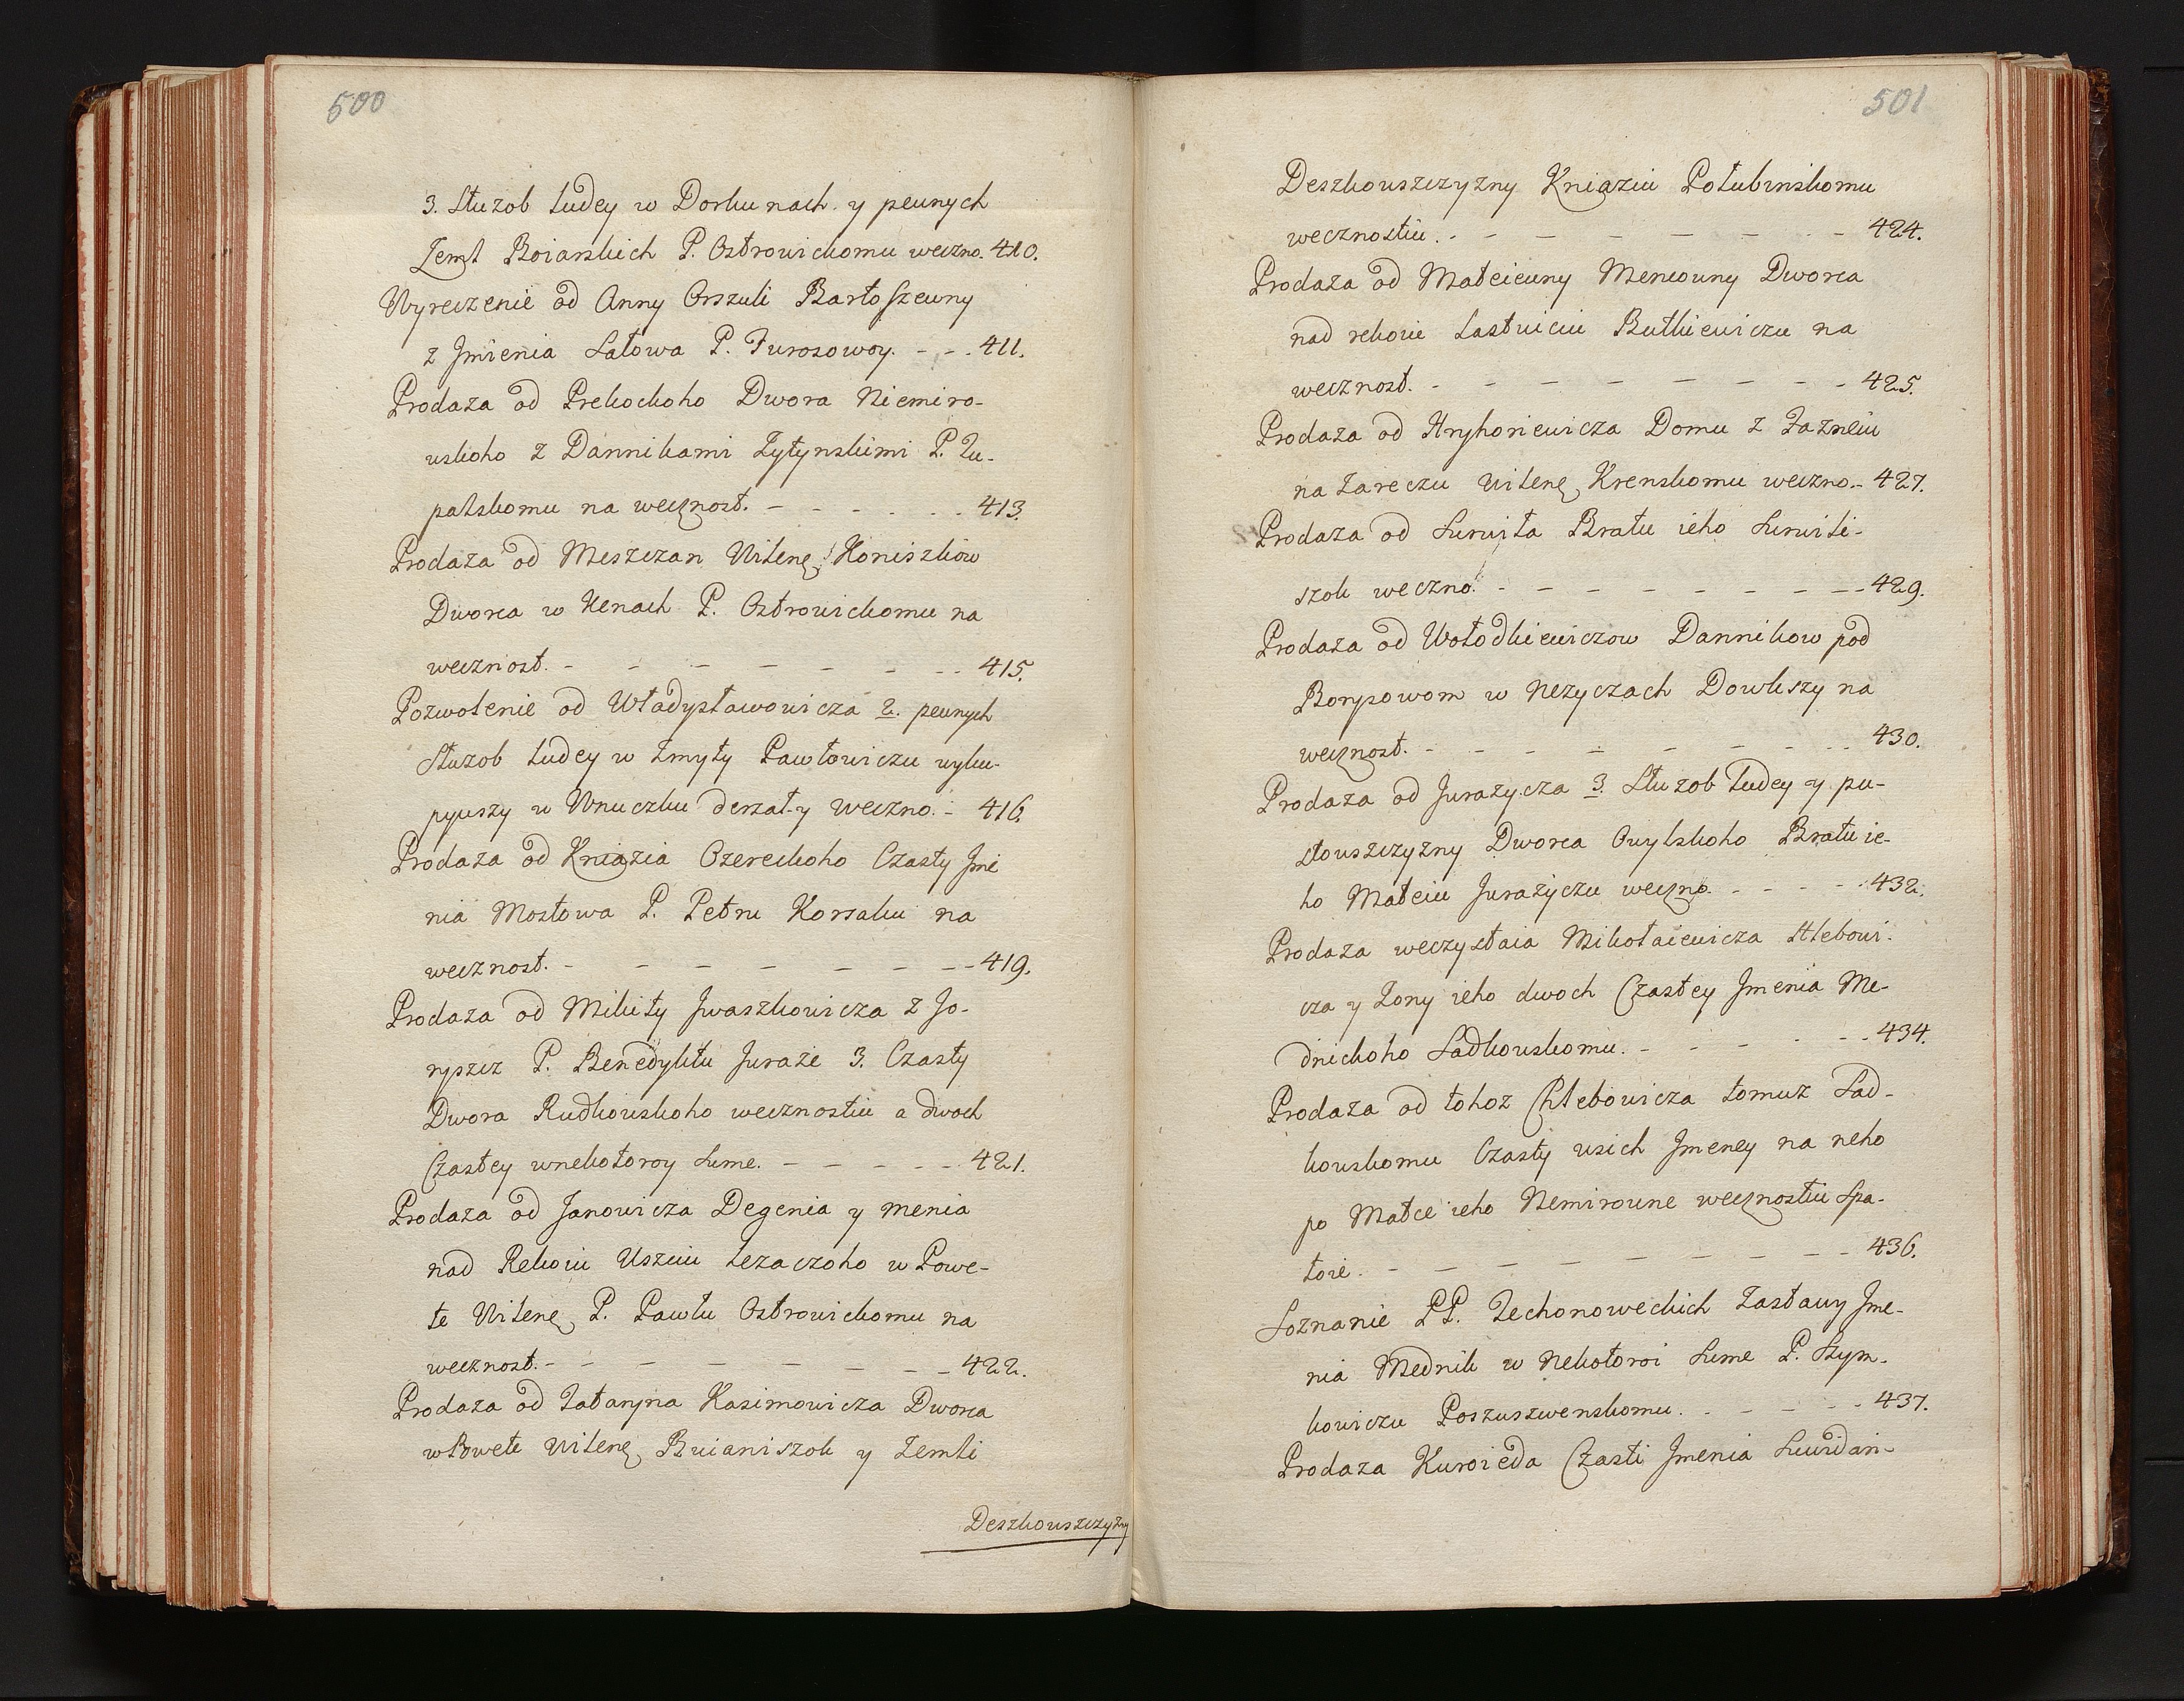 500
3. Służob ludey w Dorkunach y pewnych
Zeml Boiarskich P. Ostrowickomu weczno. 410.
Wyreczenie od Anny Orszuli Bartoszewny
z Jmienia Łatowa P. Furosowoy. - - - 411.
Prodaza od Prekockoho Dwora Niemiro-
wskoho z Dannikami Zytynskimi P. Zu-
palskomu na wecznost. - - - - - - 413.
Prodaza od Meszczan Wilene Koniszkow
Dworca w Kenach P. Ostrowickomu na
wecznost. - - - - - - - - 415.
Pozwolenie od Władysławowicza 2. pewnych
Służob ludey w Zmyły Pawłowiczu wyku-
pywszy w Wnuczku derzat-y weczno. - 416.
Prodaza od Kniazia Ozereckoho Czasty Jmi
nia Mostowa P. Petru Korsaku na
wecznost. - - - - - - - - 419.
Prodaza od Mikity Jwaszkowicza z Jo-
ryszcz P. Benedyktu Juraze 3. Czasty
Dwora Rudkouskoho wecznostiu a dwoch
Czastey wnekotoroy sume. - - - - - 421.
Prodaza od Janowicza Degenia y menia
nad Rekoiu Uszeiu lezaczoho w Powe-
te Wilene P. Pawlu Ostrowickomu na
wecznost. - - - - - - - - 422.
Prodaza od Tataryna Kasimowicza Dworca
w Powete Wilene Buianiszok y Zemli
Deszkouszczyzny
501
Deszkouszczyzny Kniaziu Połubinskomu
wecznostiu. - - - - - - - - 424.
Prodaza od Mateiewny Mencowny Dworca
nad rekoiu Łastwiciu Butkiewiczu na
wecznost. - - - - - - - - 425.
Prodaza od Hryhoriewicza Domu z Łazneiu
na Zareczu Wilene Krenskomu weczno. - 427.
Prodaza od Surwiła Bratu ieho Surwili-
szok weczno. - - - - - - - - 429.
Prodaza od Wołodkiewiczow Dannikow pod
Borysowom w Nezyczach Dowkszy na
wecznost. - - - - - - - - 430.
Prodaza od Jurażycza 3. Służob ludey y pu-
stouszczyzny Dworca Owylskoho Bratu ie-
ho Mateiu Jurażyczu weczno. - - - - 432.
Prodaza weczystaia Mikołaiewicza Hlebowi-
cza y Zony ieho dwoch Czastey Jmenia Me-
dnickoho Sadkouskomu. - - - - - 434.
Prodaza od tohoz Chlebowicza tomuz Sad-
kouskomu Czasty wsich Jmeney na neho
po Matce ieho Nemirowne wecznostiu spa-
łoie. - - - - - - - - 436.
Soznanie PP. Techonoweckich Zastawy Jme-
nia Mednik w Nekotoroi sume P. Szym-
kowiczu Poszuszwenskomu. - - - - - 437.
Prodaza Kuroieda Czasti Jmenia Suwdan-